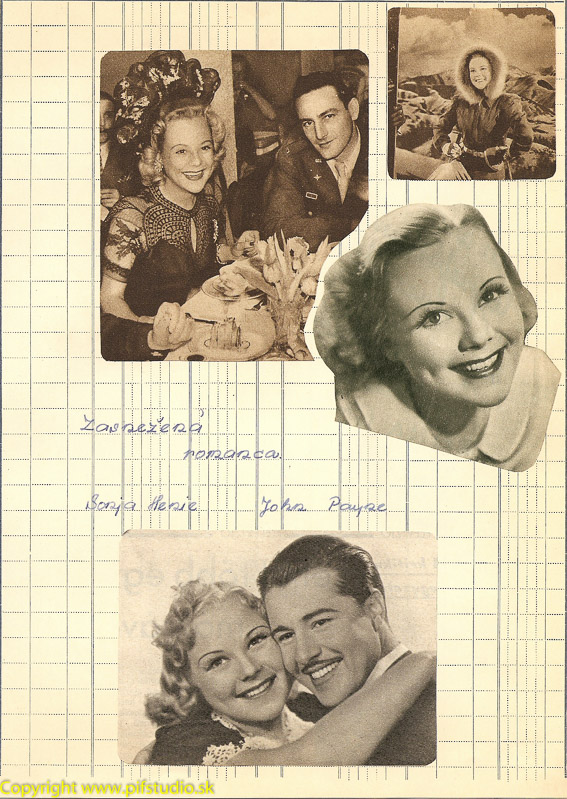 Zasnežená
romanca.
Sonja Henie John Payne
Copyright www.pifstudio.sk